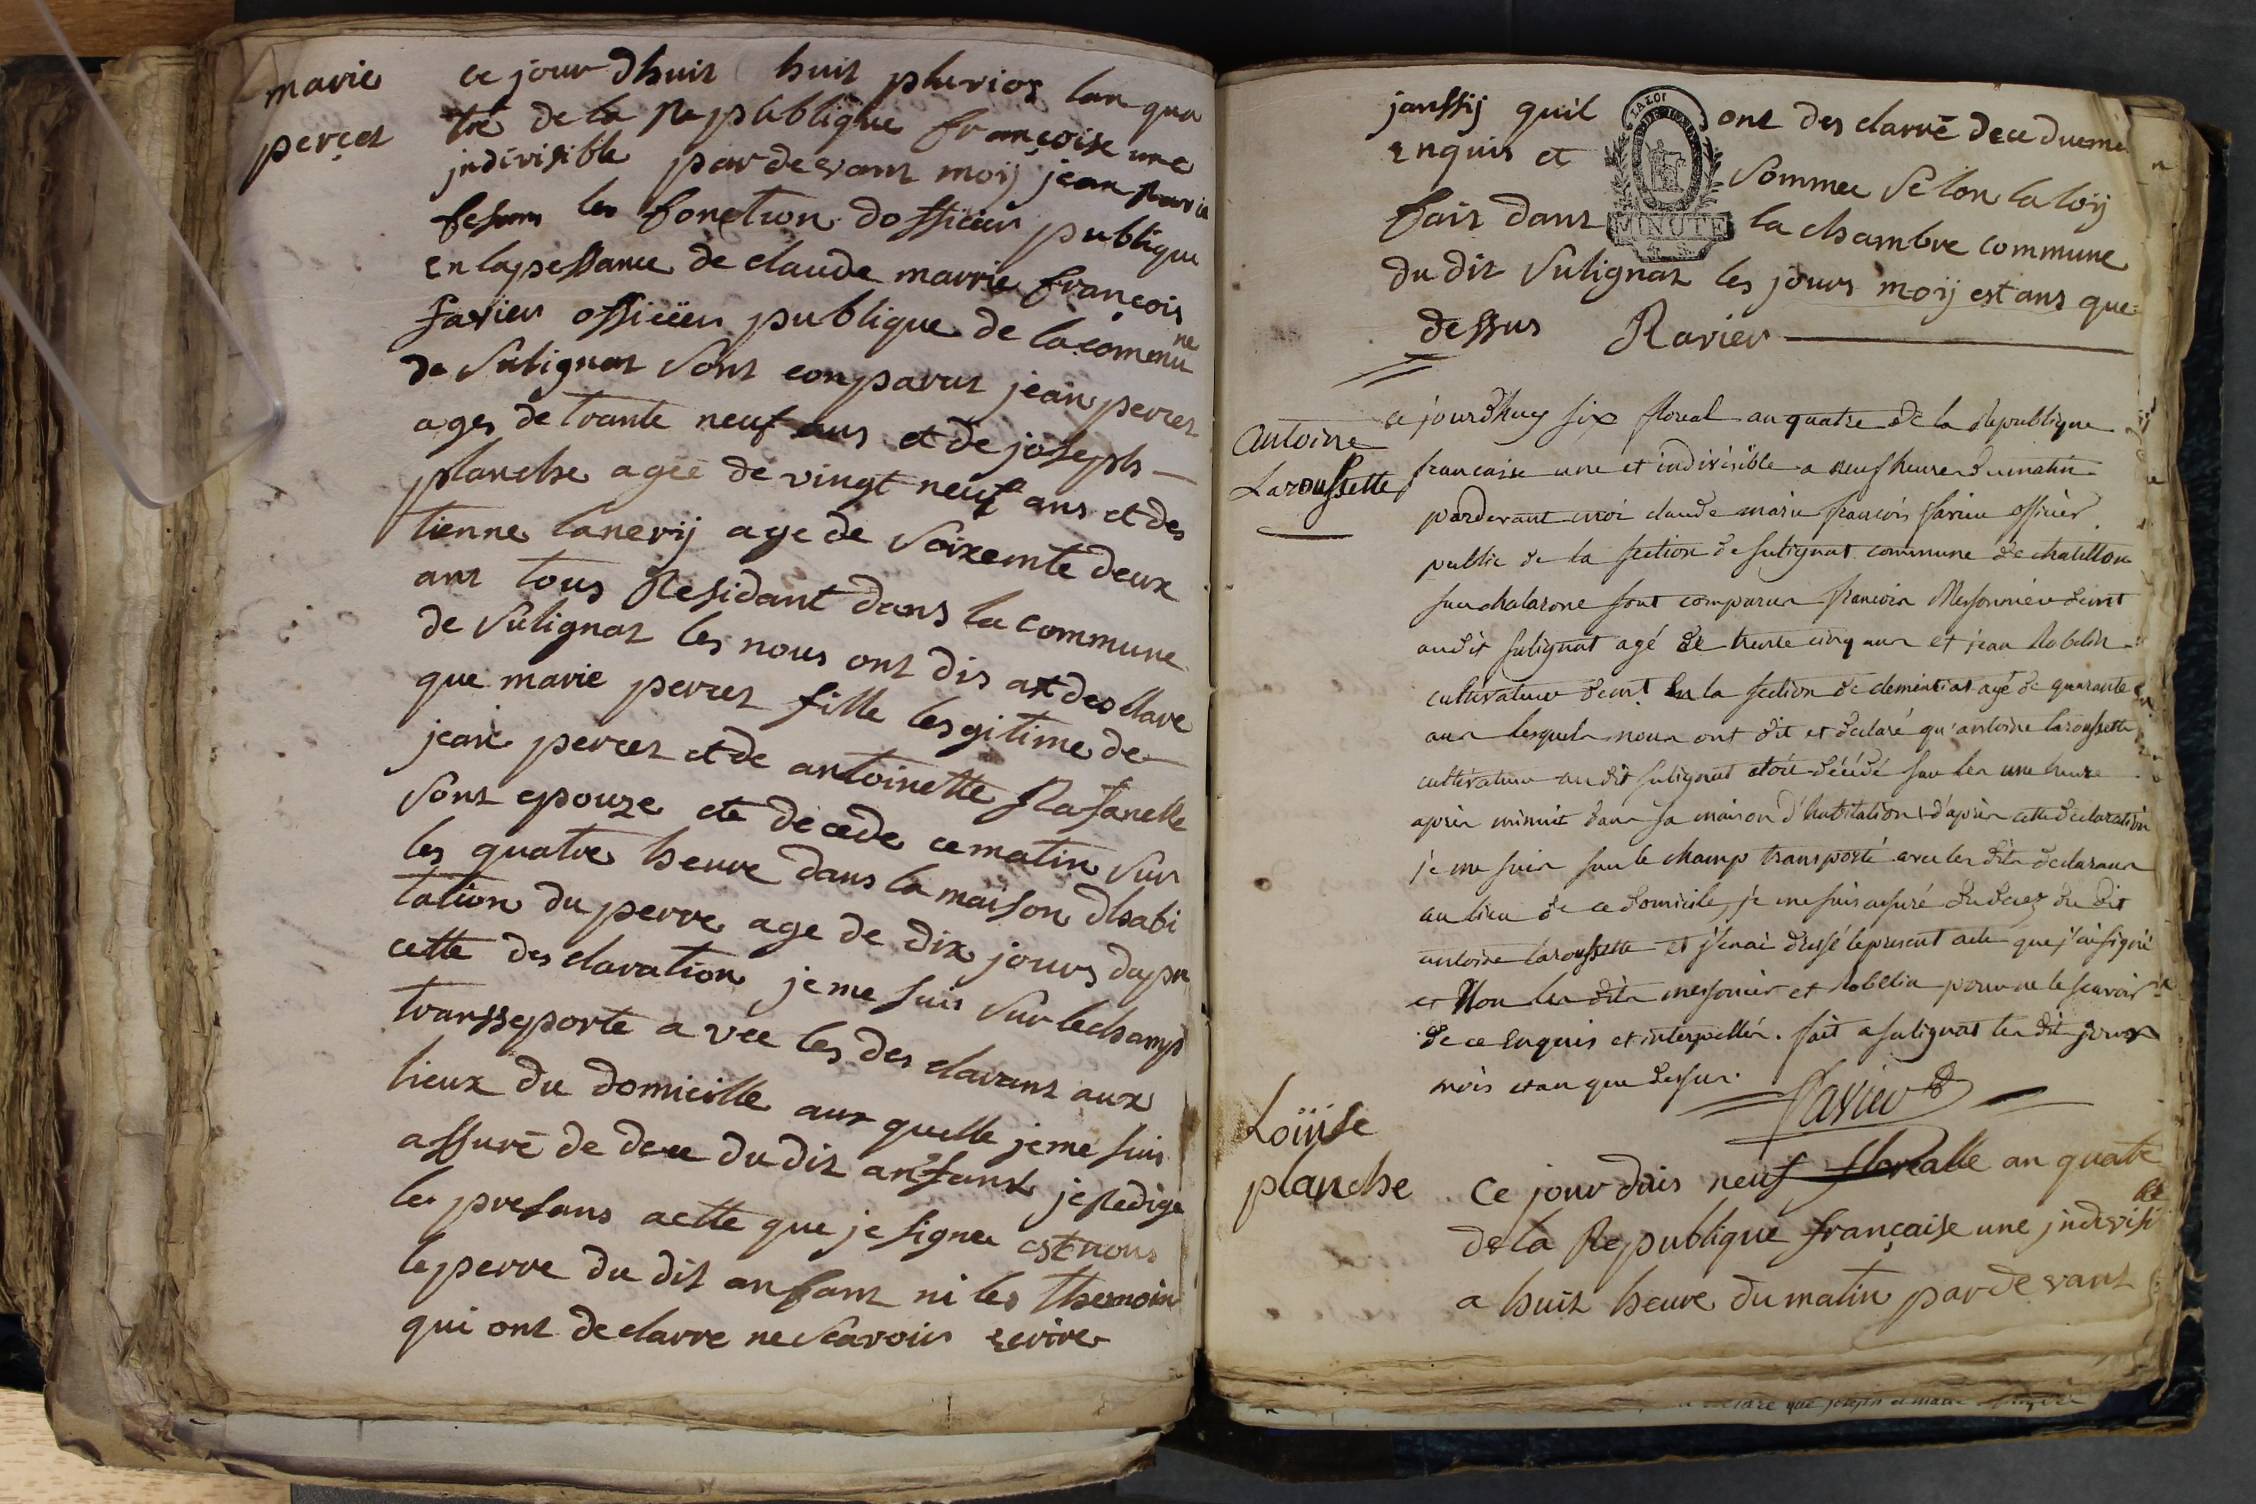 marie
percet
ce jour dhuit huit pluvios lan qua
tre de la Republique françoise une
jndivisible pardevant moij jean Ravie
fesans les fonction dofficier publique
en lapessance de claude marrie françois
favier officier publique de lacommu
ne
de Sulignat Sont comparut jean percet
ages de trante neuf ans et de josephs
planche agée de vingt neuf ans et de
tienne lanerij age de Soixemte deux
ans tous Residant dans la commune
de Sulignat les nous ont dis at decllare
que marie percet fille lesgitime de
jean percet et de antoinette Rafanelle
Sont epouze ete decede cematin Sur
les quatre heure dans la maison dhabi
tation du perre age de dix jours dapre
cette desclaration je me suis Sur lechamp
transseporte avec les desclarans aux
lieux du domicille aux quelle jeme suis
assuré de dece du dit anfant je Redige
les presans actte que je signee est nous
le perre du dit anfant ni les themoin
qui ont declarre ne Scavoir ecrire
janssij quil ont des clarré dece dueme
enquis et Sommee Selon la loij
MINUTE
fait dans la chambre commune
du dit Sulignat les jours moij est ans que
dessus Ravier
antoine
Laroussette
ce jourdhuy six floreal an quatre de la Republique
francaise une et indivisible a neuf heures du matin
pardevant moi claude marie françois favier officier
public de la section de Sulignat commune de chatillon
sur chalarone sont comparus françois Messonnier demt
au dit Sulignat agé de trente cinq ans et jean Robelin
cultivateur demt. en la section de clemencias agé de quarante
ans lesquels nous ont dit et declaré qu'antoine laroussette
cultivateur au dit Sulignat etoit décédé sur les une heure
après minuit dans sa maison d'habitation, d'après cette declaration
je me suis sur le champ transporté avec les dits declarans
au lieu de ce domicile, je me suis assuré du decez du dit
antoine laroussette et j'enai dressé lepresent acte que j'ai signé
et Non les dits messonier et Robelin pour ne le scavoir
de ce Enquis et interpellés. fait a Sulignat les dit jour
mois et an que dessus.
favier
Loüise
planche
Ce jour duis neuf florealle an quatre
de la Republique française une jndevisi
ble
a huit heure du matin par devant